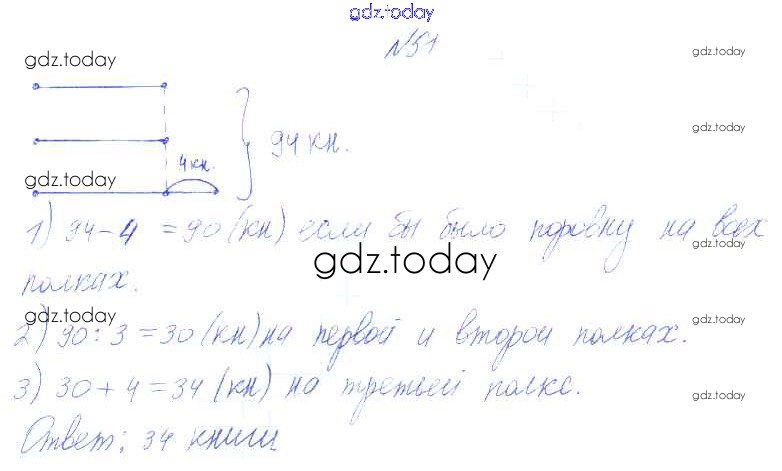 gdz.today
№51
gdz.today
gdz.today
gdz.today
4 кн.
94 кн.
gdz.today
1) 94-4 = 90 (кн) если бы было поровну на всех
gdz.today
gdz.today
полках.
gdz.today
gdz.today
2) 90:3=30 (кн) на первой и второй полках.
3) 30+4=34 (кн) на третьей полке.
gdz.today
Ответ: 34 книги